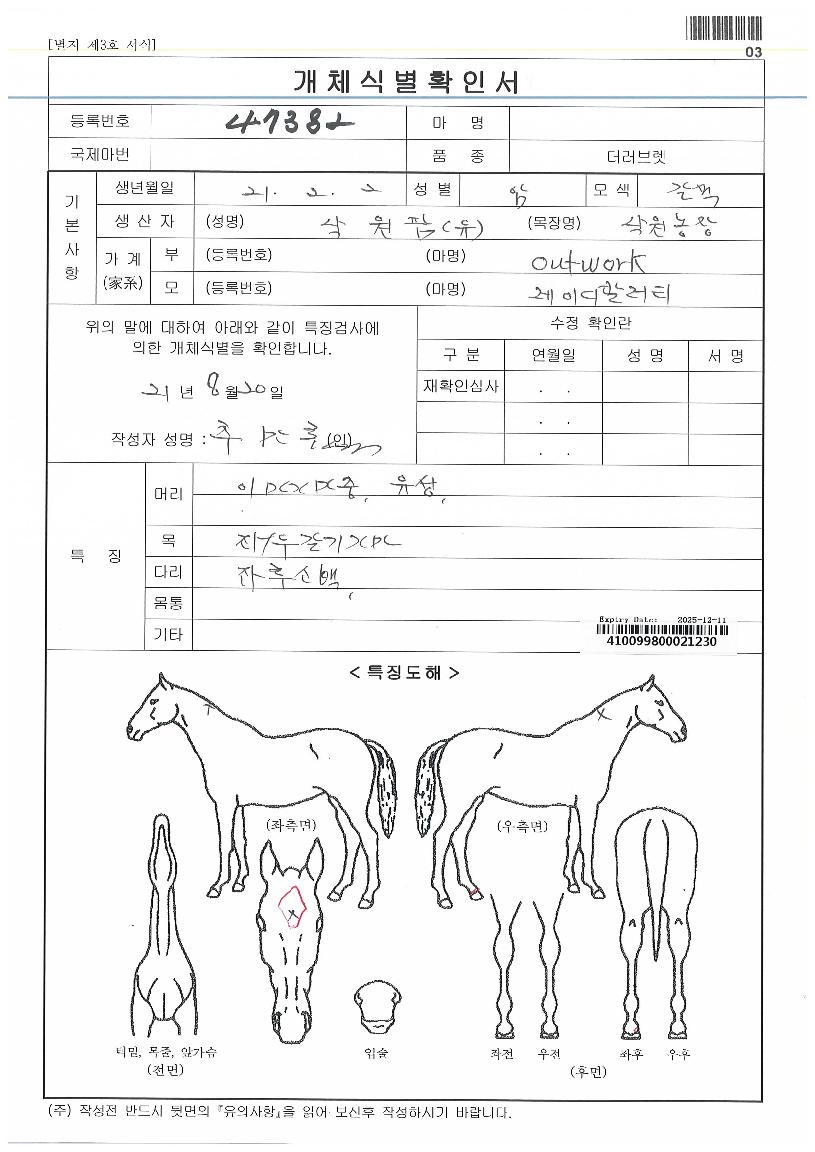 [별지 제3호 서식]
03
개체식별확인서
등록번호 47382 마 명
국제마번 품 종 더러브렛
기본사항
생년월일 21. 2. 2 성 별 암 모 색 갈색
생 산 자 (성명) 삭원팜(유) (목장명) 삭원농장
가 계 (家系) 부 (등록번호) (마명) outwork
모 (등록번호) (마명) 레이디팔러티
위의 말에 대하여 아래와 같이 특징검사에
의한 개체식별을 확인합니다.
21 년 8 월 20 일
작성자 성명 : (인)
수정 확인란
구 분 연월일 성 명 서 명
재확인심사 . .
. .
. .
특 징
머리 유성,
목
다리 좌후소백,
몸통
기타
Expiry Date: 2025-12-11
410099800021230
< 특징도해 >
(좌측면) (우측면)
턱밑, 목줄, 앞가슴
(전면)
입술
좌전 우전 좌후 우후
(후면)
(주) 작성전 반드시 뒷면의 『유의사항』을 읽어 보신후 작성하시기 바랍니다.